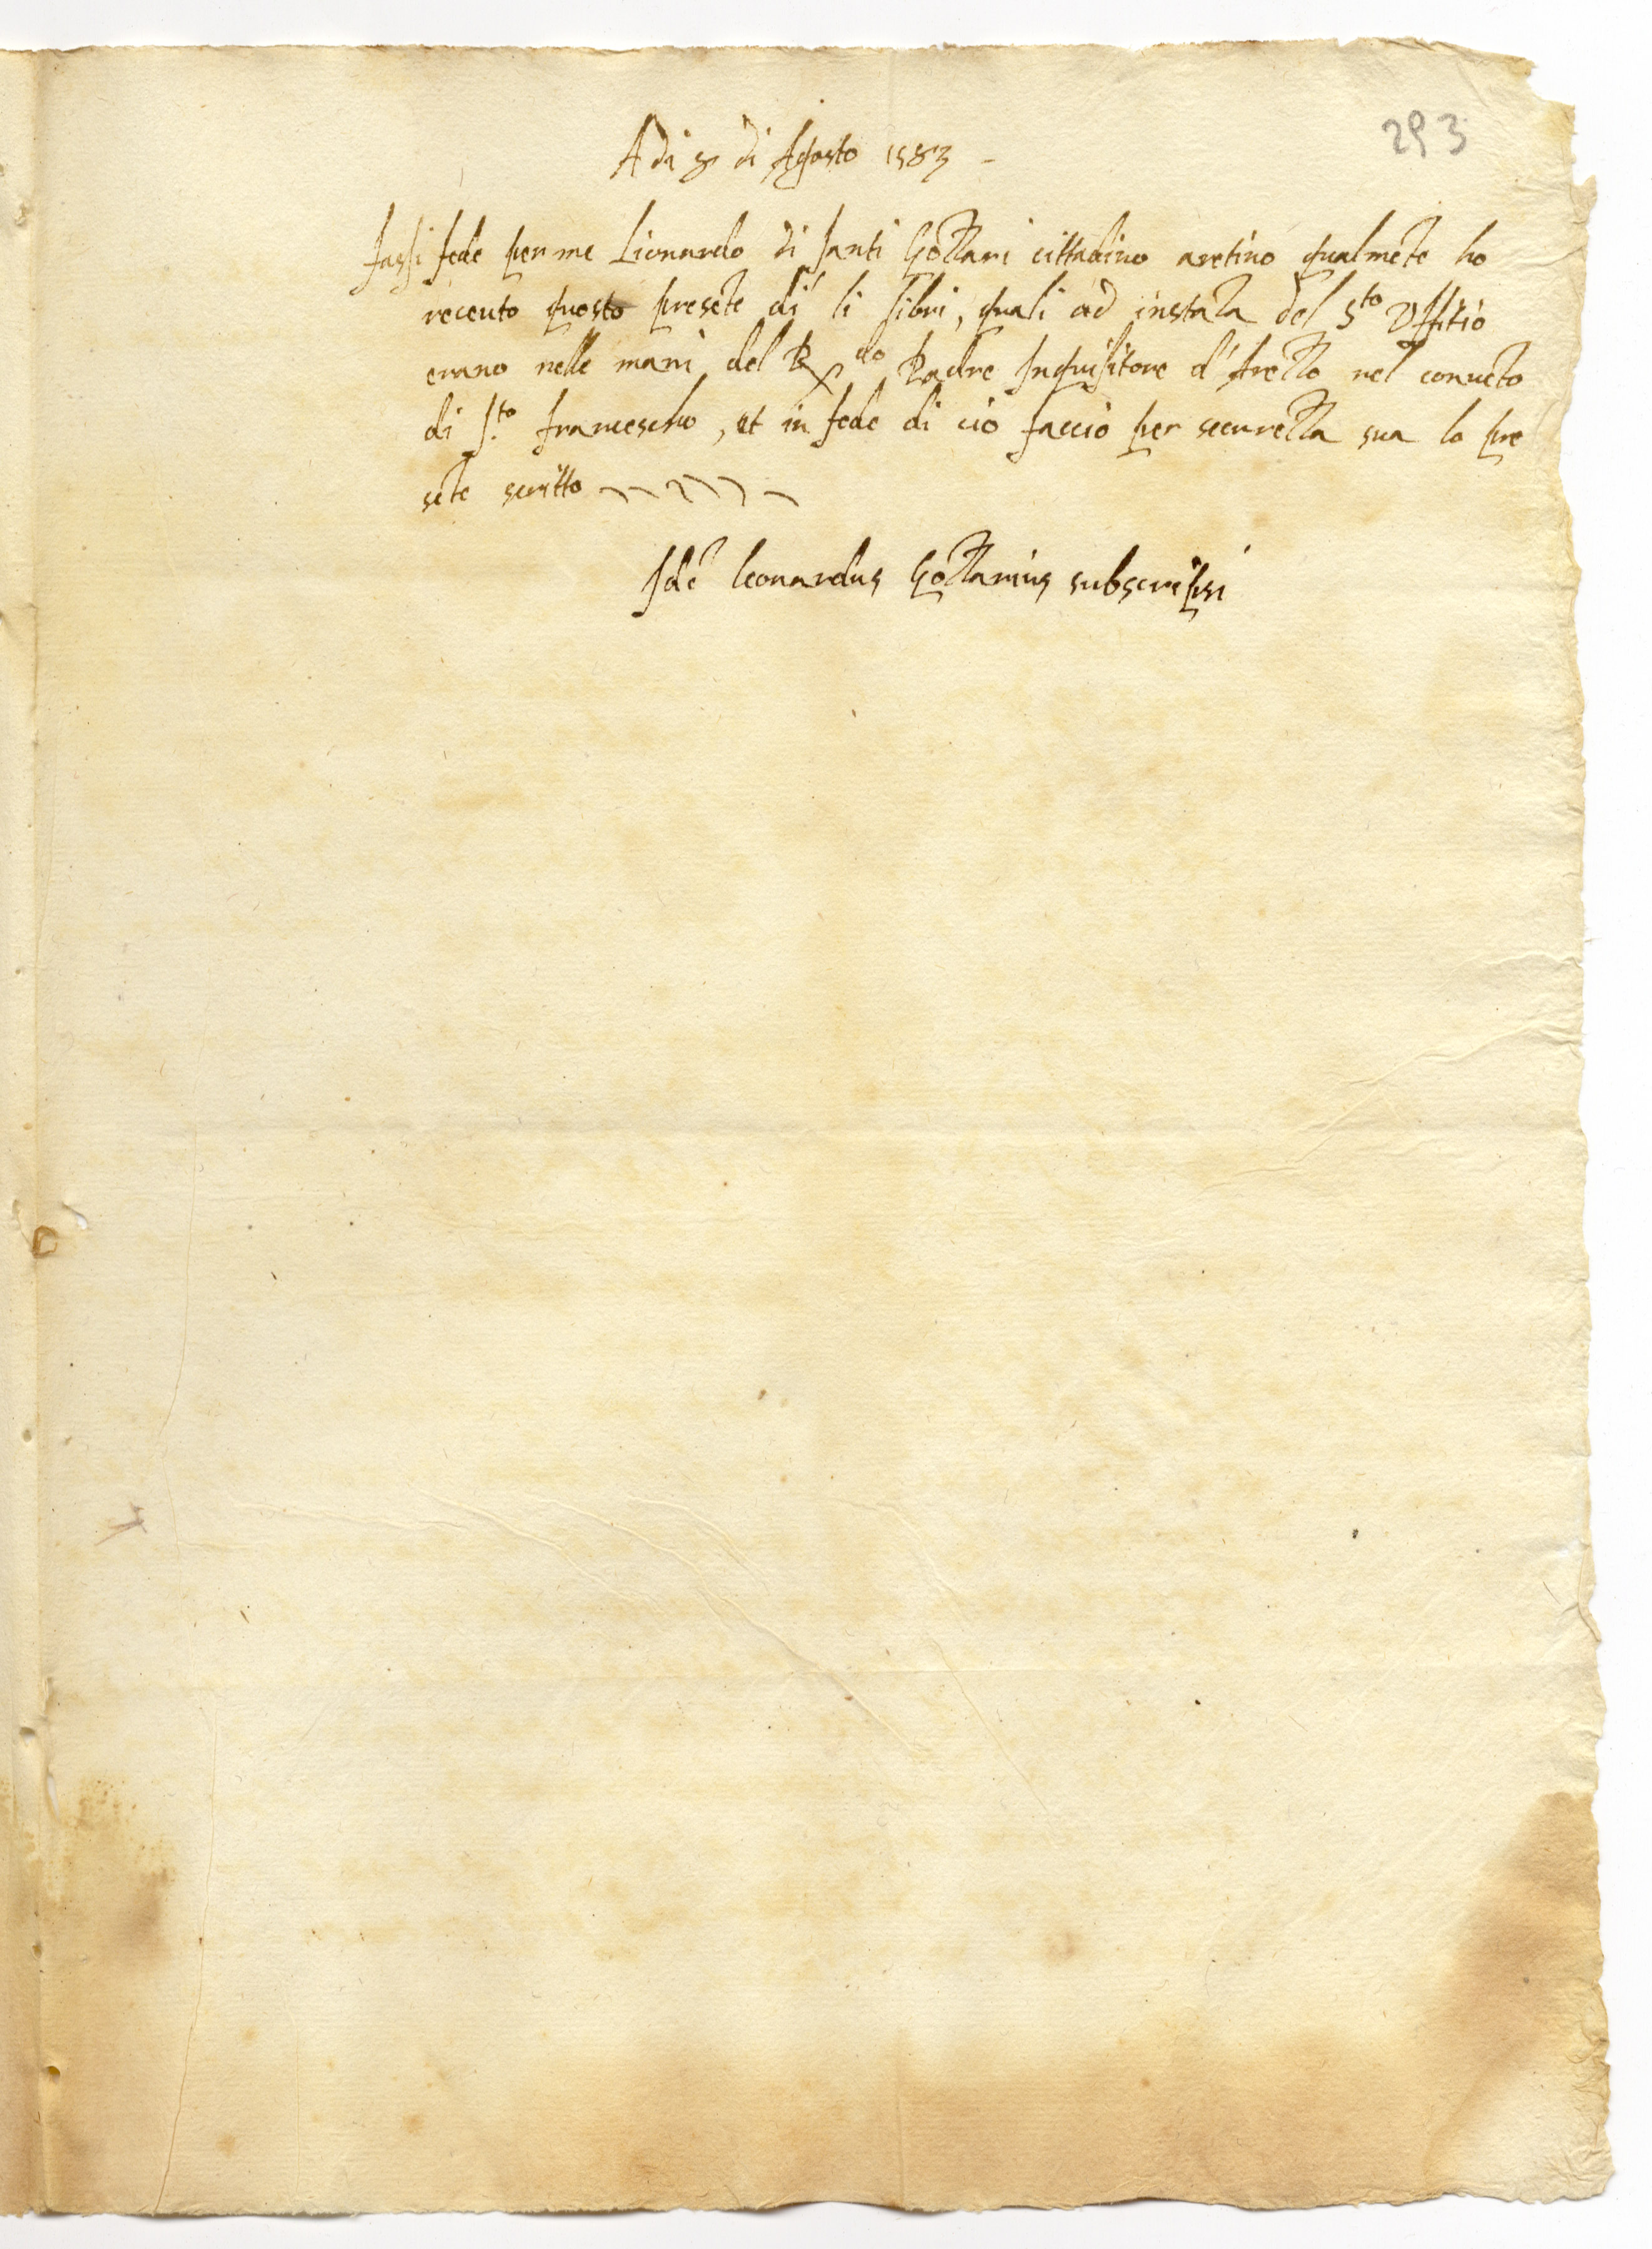 293
A di 8 di Agosto 1583 -
Fassi fede per me Lionardo di Santi Gozzari cittadino aretino qualmēte ho
receuto questo presēte dì li libri, quali ad instāza del S.to Uffitio
erano nelle mani del R.do Padre Inquisitore d'Arezzo nel convēto
di S.to Francescho, et in fede di ciò faccio per securezza sua la pre
sēte scritto
Idē Leonardus Gozzarius subscripsi